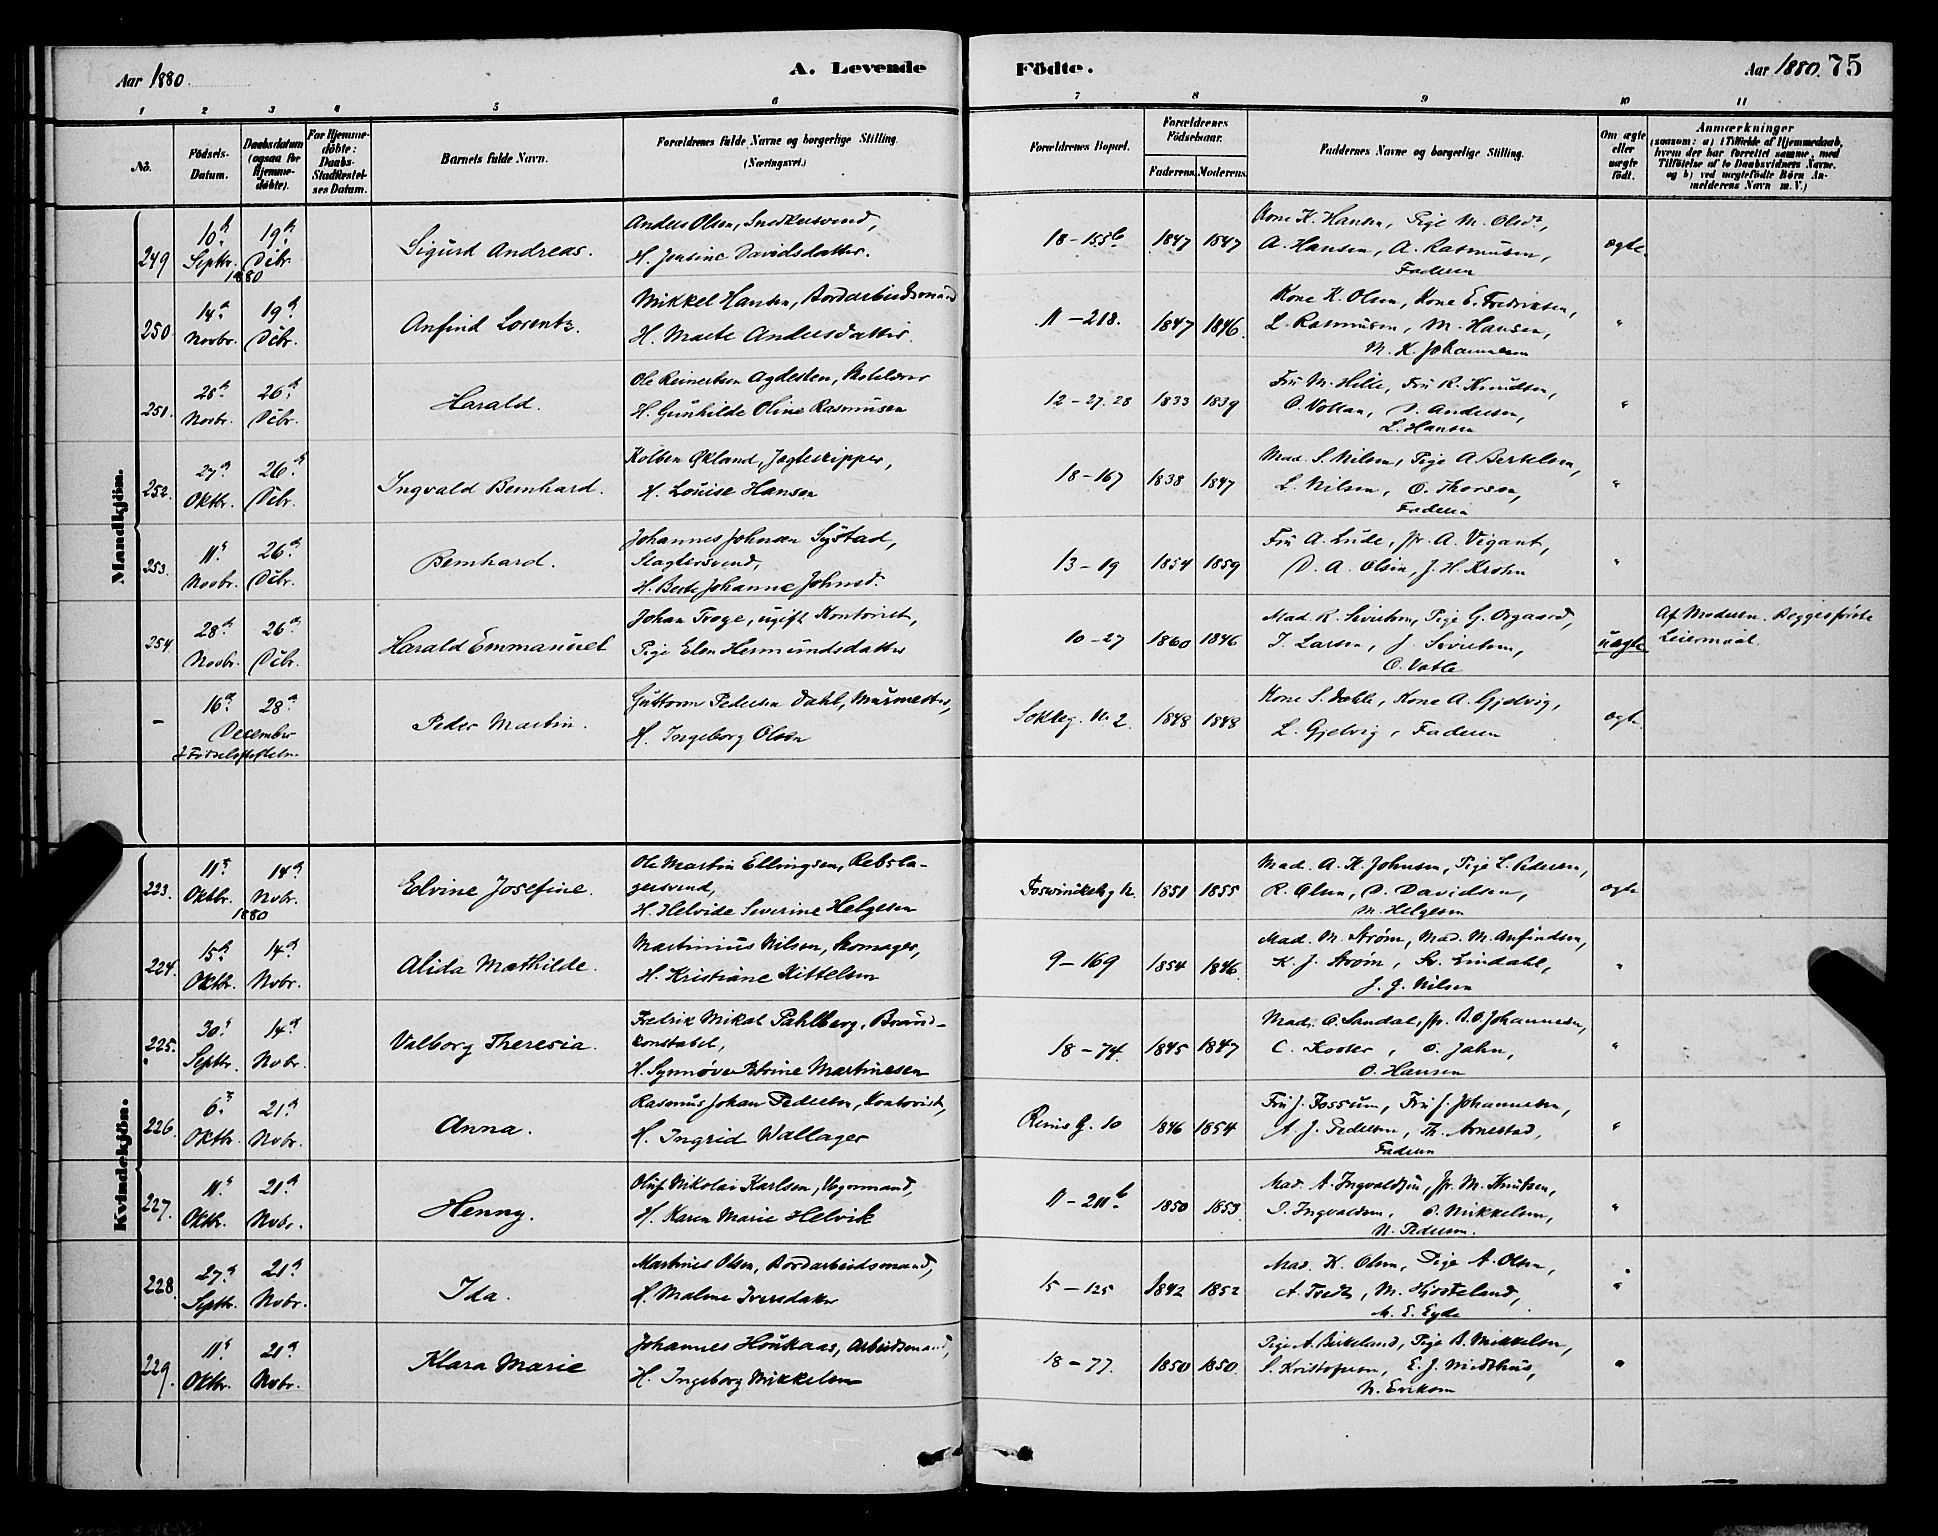 Aar 1880.
A. Levende
Födte.
Aar 1880. 75
1 2 3 4 5 6 7 8 9 10 11
No.
Födsels-Datum.
Daabsdatum (ogsaa for Hjemme-döbte).
For Hjemme-döbte: Daabs-Stadfæstel-ses Datum.
Barnets fulde Navn.
Forældrenes fulde Navne og borgerlige Stilling. (Næringsvei.)
Forældrenes Bopæl.
Forældrenes Födselsaar.
Faderens. Moderens.
Faddernes Navne og borgerlige Stilling.
Om ægte eller uægte födt.
Anmærkninger
(saasom: a) i Tilfælde af Hjemmedaab, hvem der har forrettet samme, med Tilföielse af to Daabsvidners Navne. og b) ved uægtefödte Börn An-melderens Navn m. V.)
Mandkjön.
249 10d Septbr. 1880 19d Dcbr. Sigurd Andreas.
Anders Olsen, Snedkersvend,
H. Jensine Davidsdatter.
18-155b 1847 1847
Kone K. Hansen, Pige M. Olsdr,
A. Hansen, A. Rasmusen,
Faderen
ægte
250. 14d Novbr. 19d Dcbr. Anfind Lorentz.
Mikkel Hansen, Bordarbeidsmand
H. Marte Andersdatter.
11-218. 1847 1846.
Kone K. Olsen, Kone E. Fredriksen,
L. Rasmusen, M. Hansen,
M. K. Johannesen
"
251. 28d Novbr. 26d Dcbr. Harald.
Ole Reinertsen Agdesten, Skolelærer
H. Gunhilde Oline Rasmusen
12-27.28 1833 1839
Fru M. Hille, Fru R. Knudsen,
O. Vollan, J. Andersen,
L. Hansen
"
252. 27d Oktbr. 26d Dcbr. Ingvald Bernhard.
Kolben Økland, Jægteskipper,
H. Louise Hansen
18-167 1838 1847
Mad. S. Nilsen, Pige A Bertelsen,
L. Nilsen, O. Thorsen,
Faderen
"
253. 11te Novbr. 26d Dcbr. Bernhard.
Johannes Johnsen Systad,
Slagtersvend,
H. Berte Johanne Johnsd.
13-19 1854 1859
Fru A. Lude, Jfr. A. Vigant,
D. A. Olsen, J. H. Krohn
"
254 28d Novbr. 26d Dcbr. Harald Emmanuel
Johan Troge, ugift Kontorist,
Pige Elen Hermundsdatter
10-27 1860 1846
Mad R. Sivertsen, Pige G. Orgaard,
T. Larsen, J. Sivertsen,
O. Vatle
uægte
Af Moderen. Begges første
Leiermaal.
- 16d 28d December Peder Martin.
Guttorm Pedersen Dahl, Murmester,
H. Ingeborg Olsen
Sokkeg. N. 2. 1848 1848
Kone S. Dahle, Kone A. Gjelvig,
L. Gjelvig, Faderen
ægte
Kvindekjön.
223. 11te Oktbr. 1880 14d Nvbr. Elvine Josefine.
Ole Martin Ellingsen, Rebsla-
gersvend,
H. Helvide Severine Helgesen
1851 1855
Mad. A. K. Johnsen, Pige L. Pedersen,
R. Olsen, D. Davidsen,
M. Helgesen
ægte
224. 15d Oktbr. 14d Nvbr. Alida Mathilde.
Martinius Nilsen, Skomager,
H. Kristiane Kittelsen
9-169 1854 1846.
Mad. M. Strøm, Mad. M. Anfindsen,
K. J. Strøm, Sv. Lindahl,
J. J. Nilsen
"
225. 30te Septbr. 14d Nvbr. Valborg Theresia.
Fredrik Mikal Pahlberg, Brand-
konstabel,
H. Synnøve Petrine Martinesen
18-74. 1845 1847
Mad. O. Sandal, Jfr. B. O. Johannesen,
C. Koster, O. Jahn,
O. Hansen
"
226. 6te Oktbr. 21d Nvbr. Anna.
Rasmus Johan Pedersen, Kontorist,
H. Ingrid Wallager
Renus G. 10 1846 1854
Fru J. Fossum, Fru J. Johannesen,
A. J. Pedersen, Th. Arnestad,
Faderen
"
227. 11te Oktbr. 21d Nvbr. Henny.
Oluf Nikolai Karlsen, Vognmand,
H. Karen Marie Helvik
11-211b 1850 1853
Mad. A. Ingvaldsen, Jfr. M. Knutsen,
I. Ingvaldsen, O. Mikkelsen,
N. Pedersen.
"
228. 27d Septbr. 21d Nvbr. Ida.
Martines Olsen, Bordarbeidsmand,
H. Malene Iversdatter
15-125 1842 1852
Mad. K. Olsen, Pige A. Olsen,
A. Tvedt, M. Hjorteland,
M. E. Eyde
"
229. 11te Oktbr. 21d Nvbr. Klara Marie
Johannes Houkaas, Arbeidsmand,
H. Ingeborg Mikkelsen
18-77. 1850 1850.
Pige A. Birkeland, Pige B. Mikkelsen,
S. Kristofersen, E. J. Midthus,
N. Eriksen
"